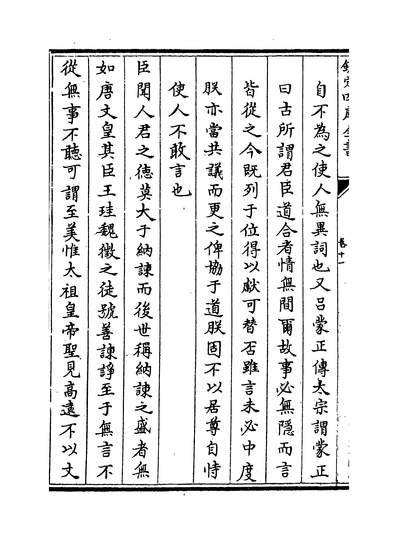 自不為之使人無異詞也又呂蒙正傳太宗謂蒙正
曰古所謂君臣道合者情無間爾故事必無隱而言
皆從之今既列于位得以獻可替否雖言未必中度
朕亦當共議而更之俾協于道朕固不以居尊自恃
使人不敢言也
臣聞人君之德莫大于納諫而後世稱納諫之盛者無
如唐文皇其臣王珪魏徵之徒號善諫諍至于無言不
從無事不聽可謂至美惟太祖皇帝聖見高遠不以文